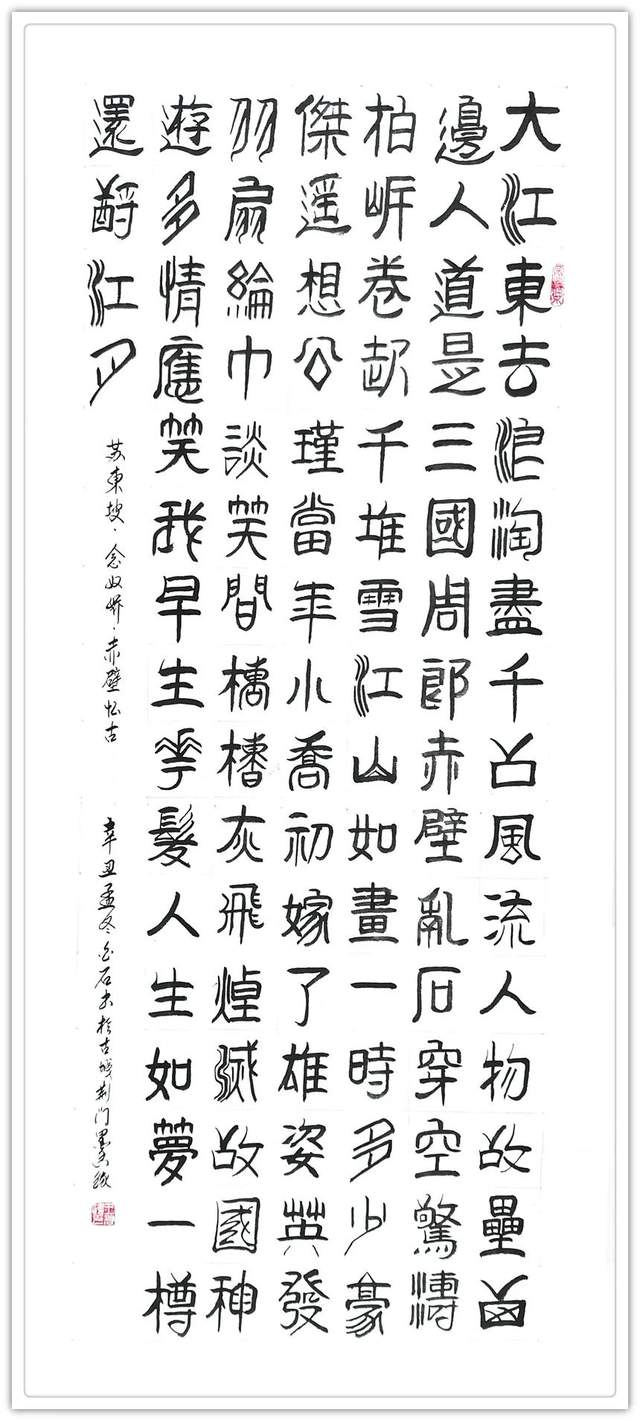 大江東去浪淘盡千古風流人物故壘西
邊人道是三國周郎赤壁亂石穿空驚濤
拍岸卷起千堆雪江山如畫一時多少豪
傑遥想公瑾當年小喬初嫁了雄姿英發
羽扇綸巾談笑間檣櫓灰飛煙滅故國神
遊多情應笑我早生華髮人生如夢一樽
還酹江月
苏東坡·念奴娇·赤壁怀古
辛丑孟冬白石书於古城荆门